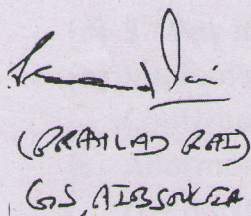 (PRAHLAD RAI)
GS, AIBSNLEA